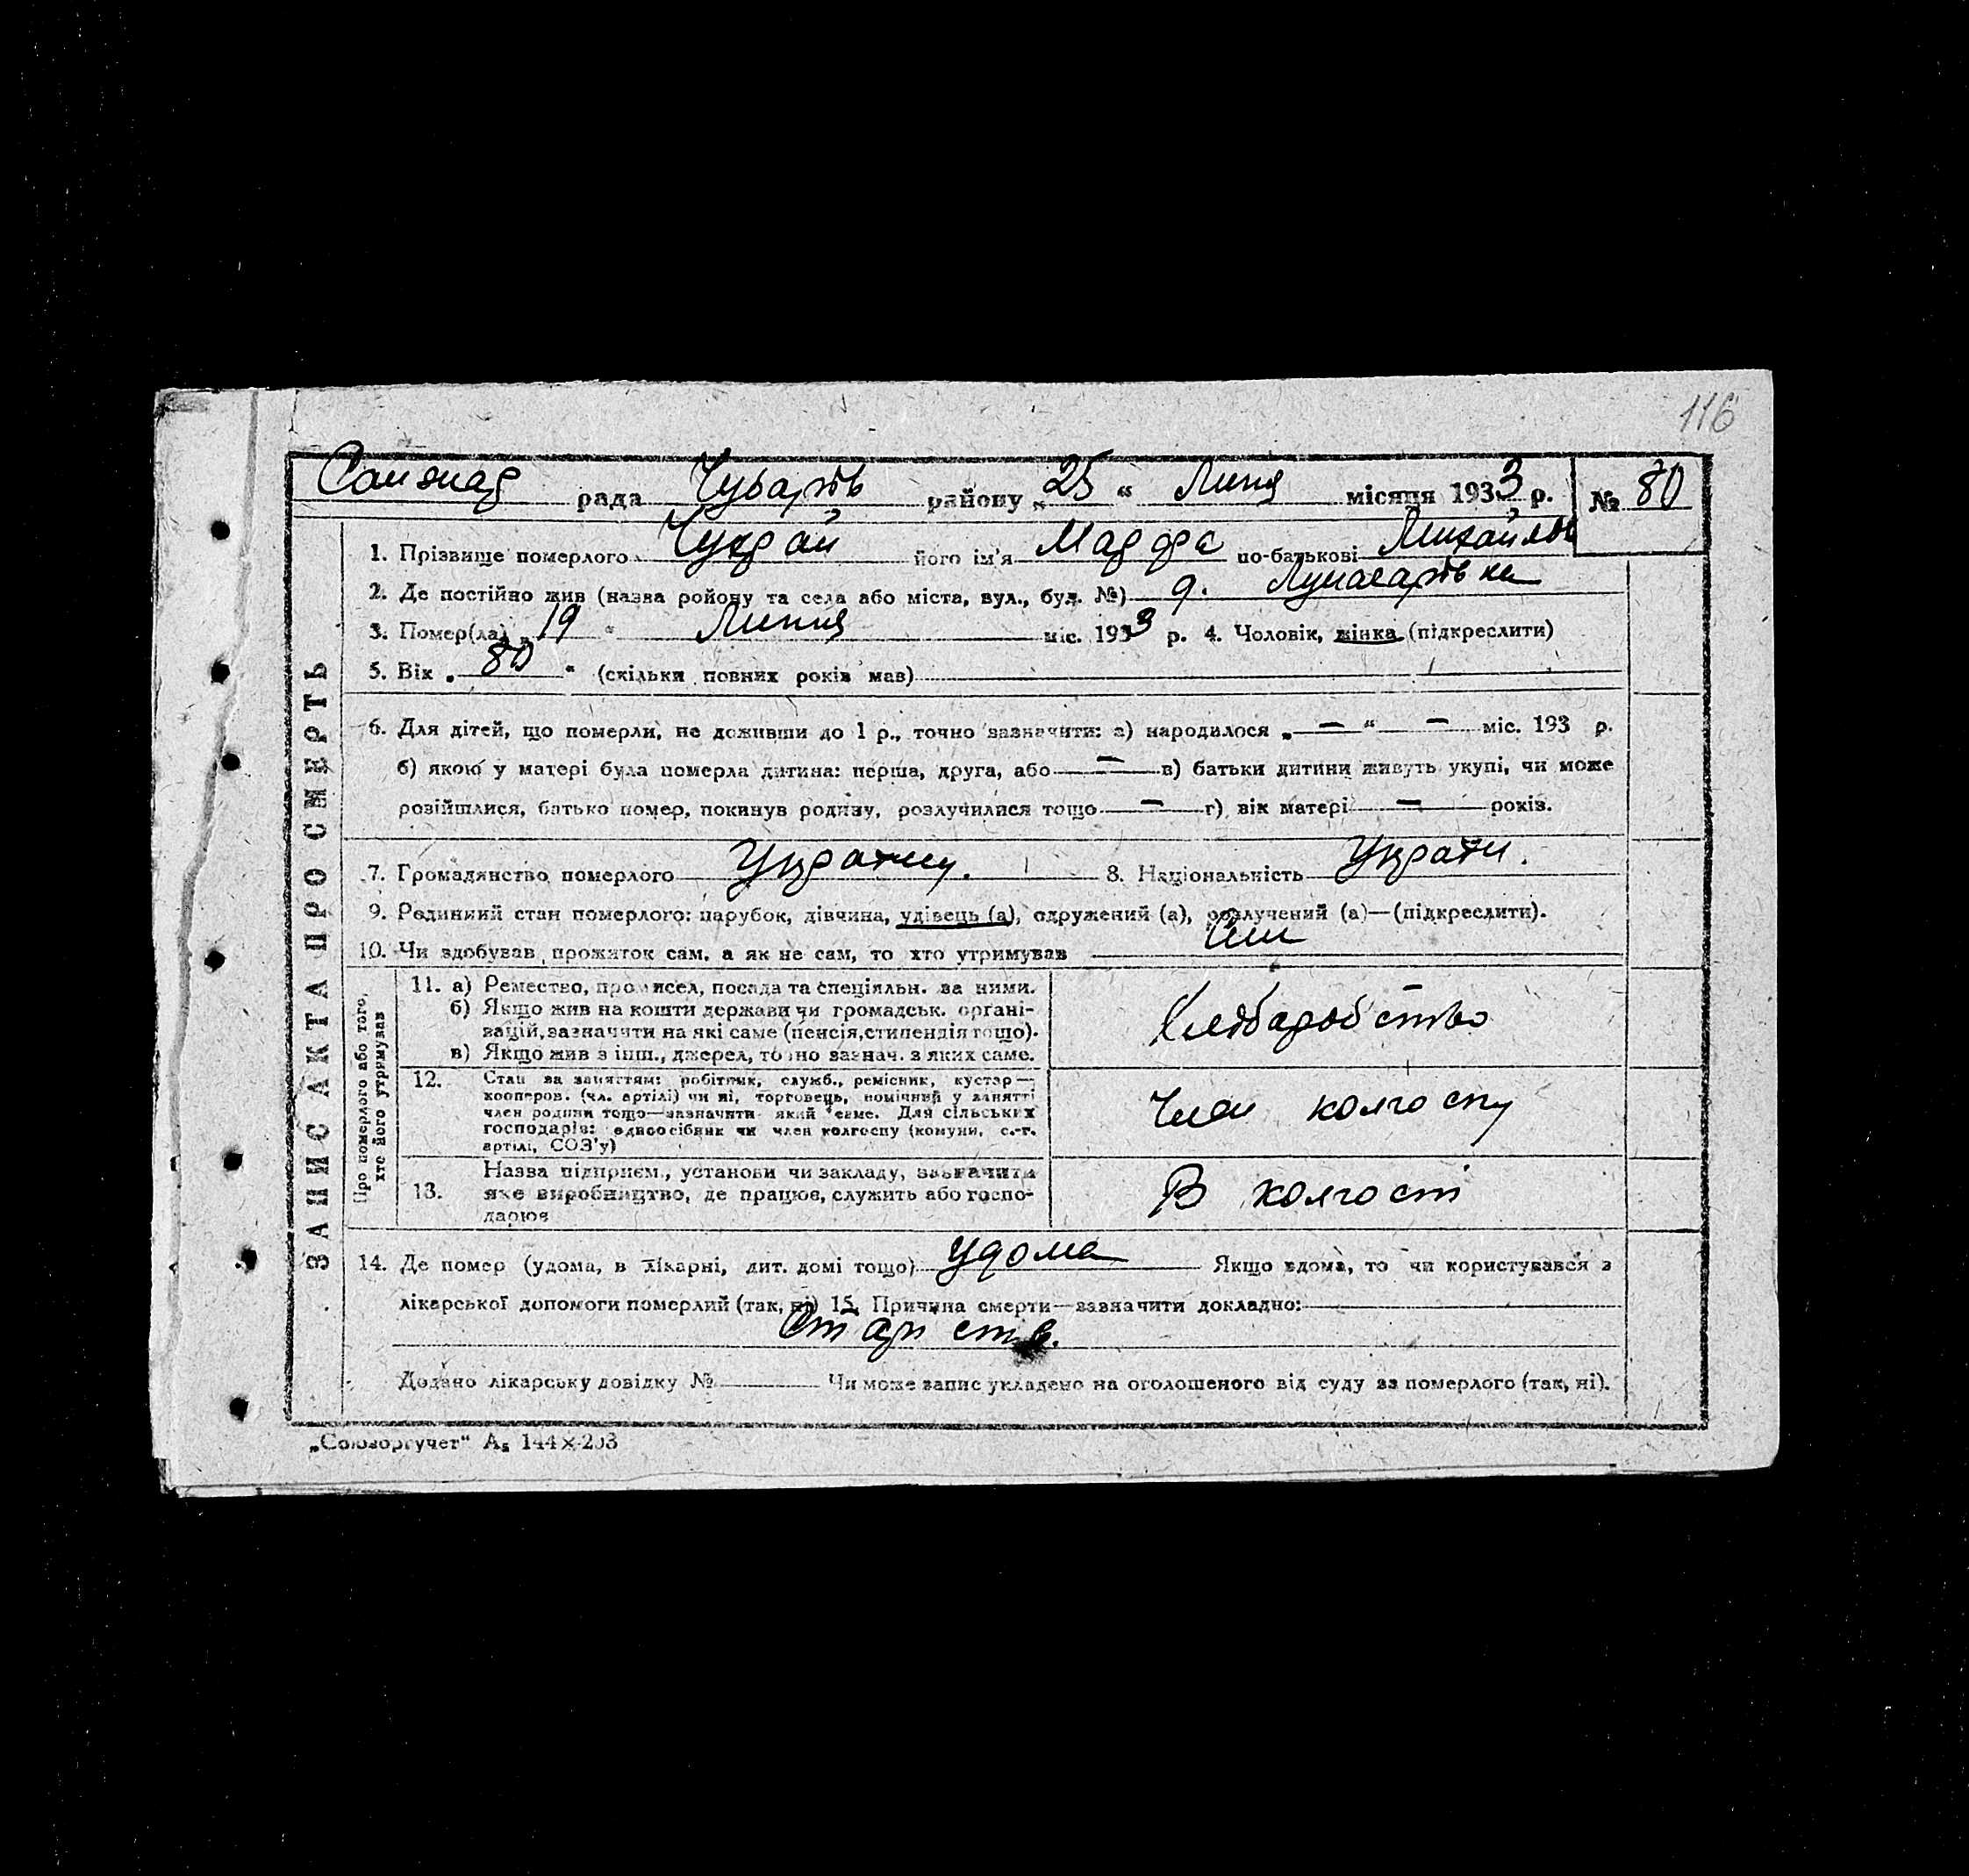 116
Санжар рада Чубарів району „25“ Липня місяця 1933 р. № 80
ЗАПИС АКТА ПРО СМЕРТЬ
1. Прізвище померлого Чухрай його ім'я Марфа по-батькові Михайлів
2. Де постійно жив (назва ройону та села або міста, вул., буд. №) д. Луначарівка
3. Помер(ла) „19“ Липня міс. 1933 р. 4. Чоловік, жінка (підкреслити)
5. Вік „80“ (скільки повних років мав)
6. Для дітей, що померли, не доживши до 1 р., точно зазначити: а) народилося „—“ — міс. 193 р.
б) якою у матері була померла дитина: перша, друга, або — в) батьки дитини живуть укупі, чи може
розійшлися, батько помер, покинув родину, розлучилися тощо — г) вік матері — років.
7. Громадянство померлого 8. Національність
9. Родинний стан померлого: парубок, дівчина, удівець (а), одружений (а), розлучений (а)—(підкреслити).
10. Чи здобував прожиток сам, а як не сам, то хто утримував
Про померлого або того, хто його утримував
11. а) Ремество, промисел, посада та спеціяльн. за ними.
б) Якщо жив на кошти держави чи громадськ. органі-
зацій, зазначити на які саме (пенсія, стипендія тощо).
в) Якщо жив з інш., джерел, точно зазнач. з яких саме.
Хлебаробство
12. Стан за заняттям: робітник, служб., ремісник, кустар—
кооперов. (чл. артілі) чи ні, торговець, помічний у занятті
член родини тощо—зазначити який саме. Для сільських
господарів: одноосібник чи член колгоспу (комуни, с.-г.
артілі, СОЗ'у)
Член колгоспу
13. Назва підприєм., установи чи закладу, зазначити
яке виробництво, де працює, служить або госпо-
дарює
В колгоспі
14. Де помер (удома, в лікарні, дит. домі тощо) Удома Якщо вдома, то чи користувався з
лікарської допомоги померлий (так, ні) 15. Причина смерти—зазначити докладно:
Додано лікарську довідку № Чи може запис укладено на оголошеного від суду за померлого (так, ні).
„Союзоргучет“ А₅ 144×203